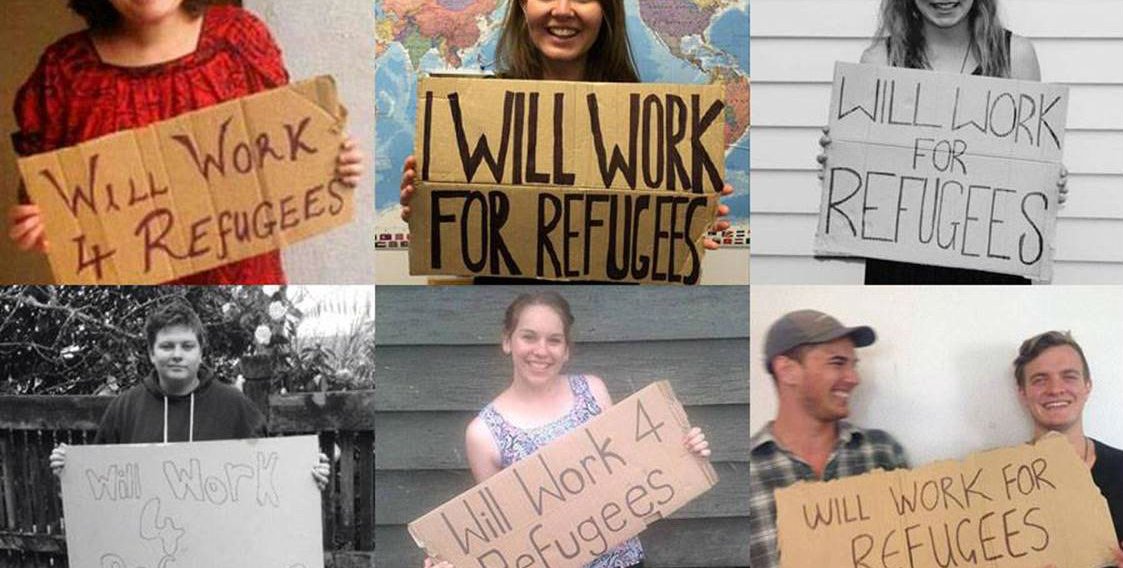 Will Work
4 Refugees
I WILL WORK
FOR REFUGEES
WILL WORK
FOR
REFUGEES
Will Work
4
Will Work 4
Refugees
WILL WORK FOR
REFUGEES